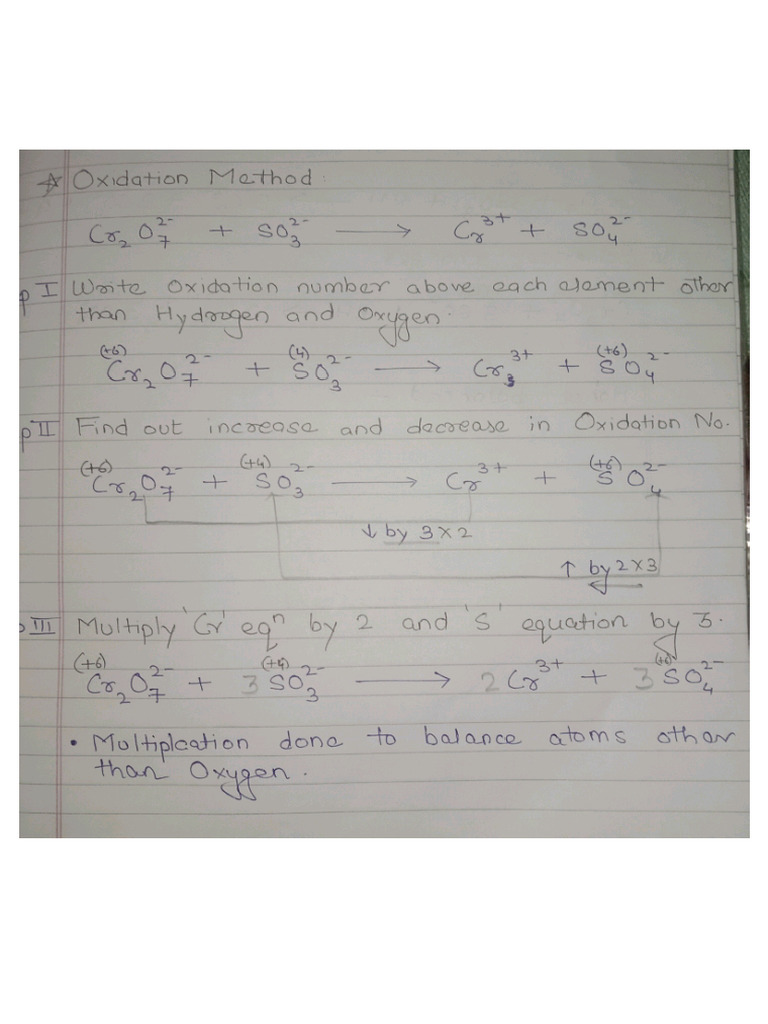 ☆ Oxidation Method.
Cr₂O₇²⁻ + SO₃²⁻ → Cr³⁺ + SO₄²⁻
p I Write Oxidation number above each element other
than Hydrogen and Oxygen.
(+6) (4) (+6)
Cr₂O₇²⁻ + SO₃²⁻ → Cr₃³⁺ + SO₄²⁻
p II Find out increase and decrease in Oxidation No.
(+6) (+4) (+6)
Cr₂O₇²⁻ + SO₃²⁻ → Cr³⁺ + SO₄²⁻
↓ by 3×2
↑ by 2×3
p III Multiply 'Cr' eqⁿ by 2 and 'S' equation by 3.
(+6) (+4) (+6)
Cr₂O₇²⁻ + 3SO₃²⁻ → 2Cr³⁺ + 3SO₄²⁻
• Multiplcation done to balance atoms other
than Oxygen.